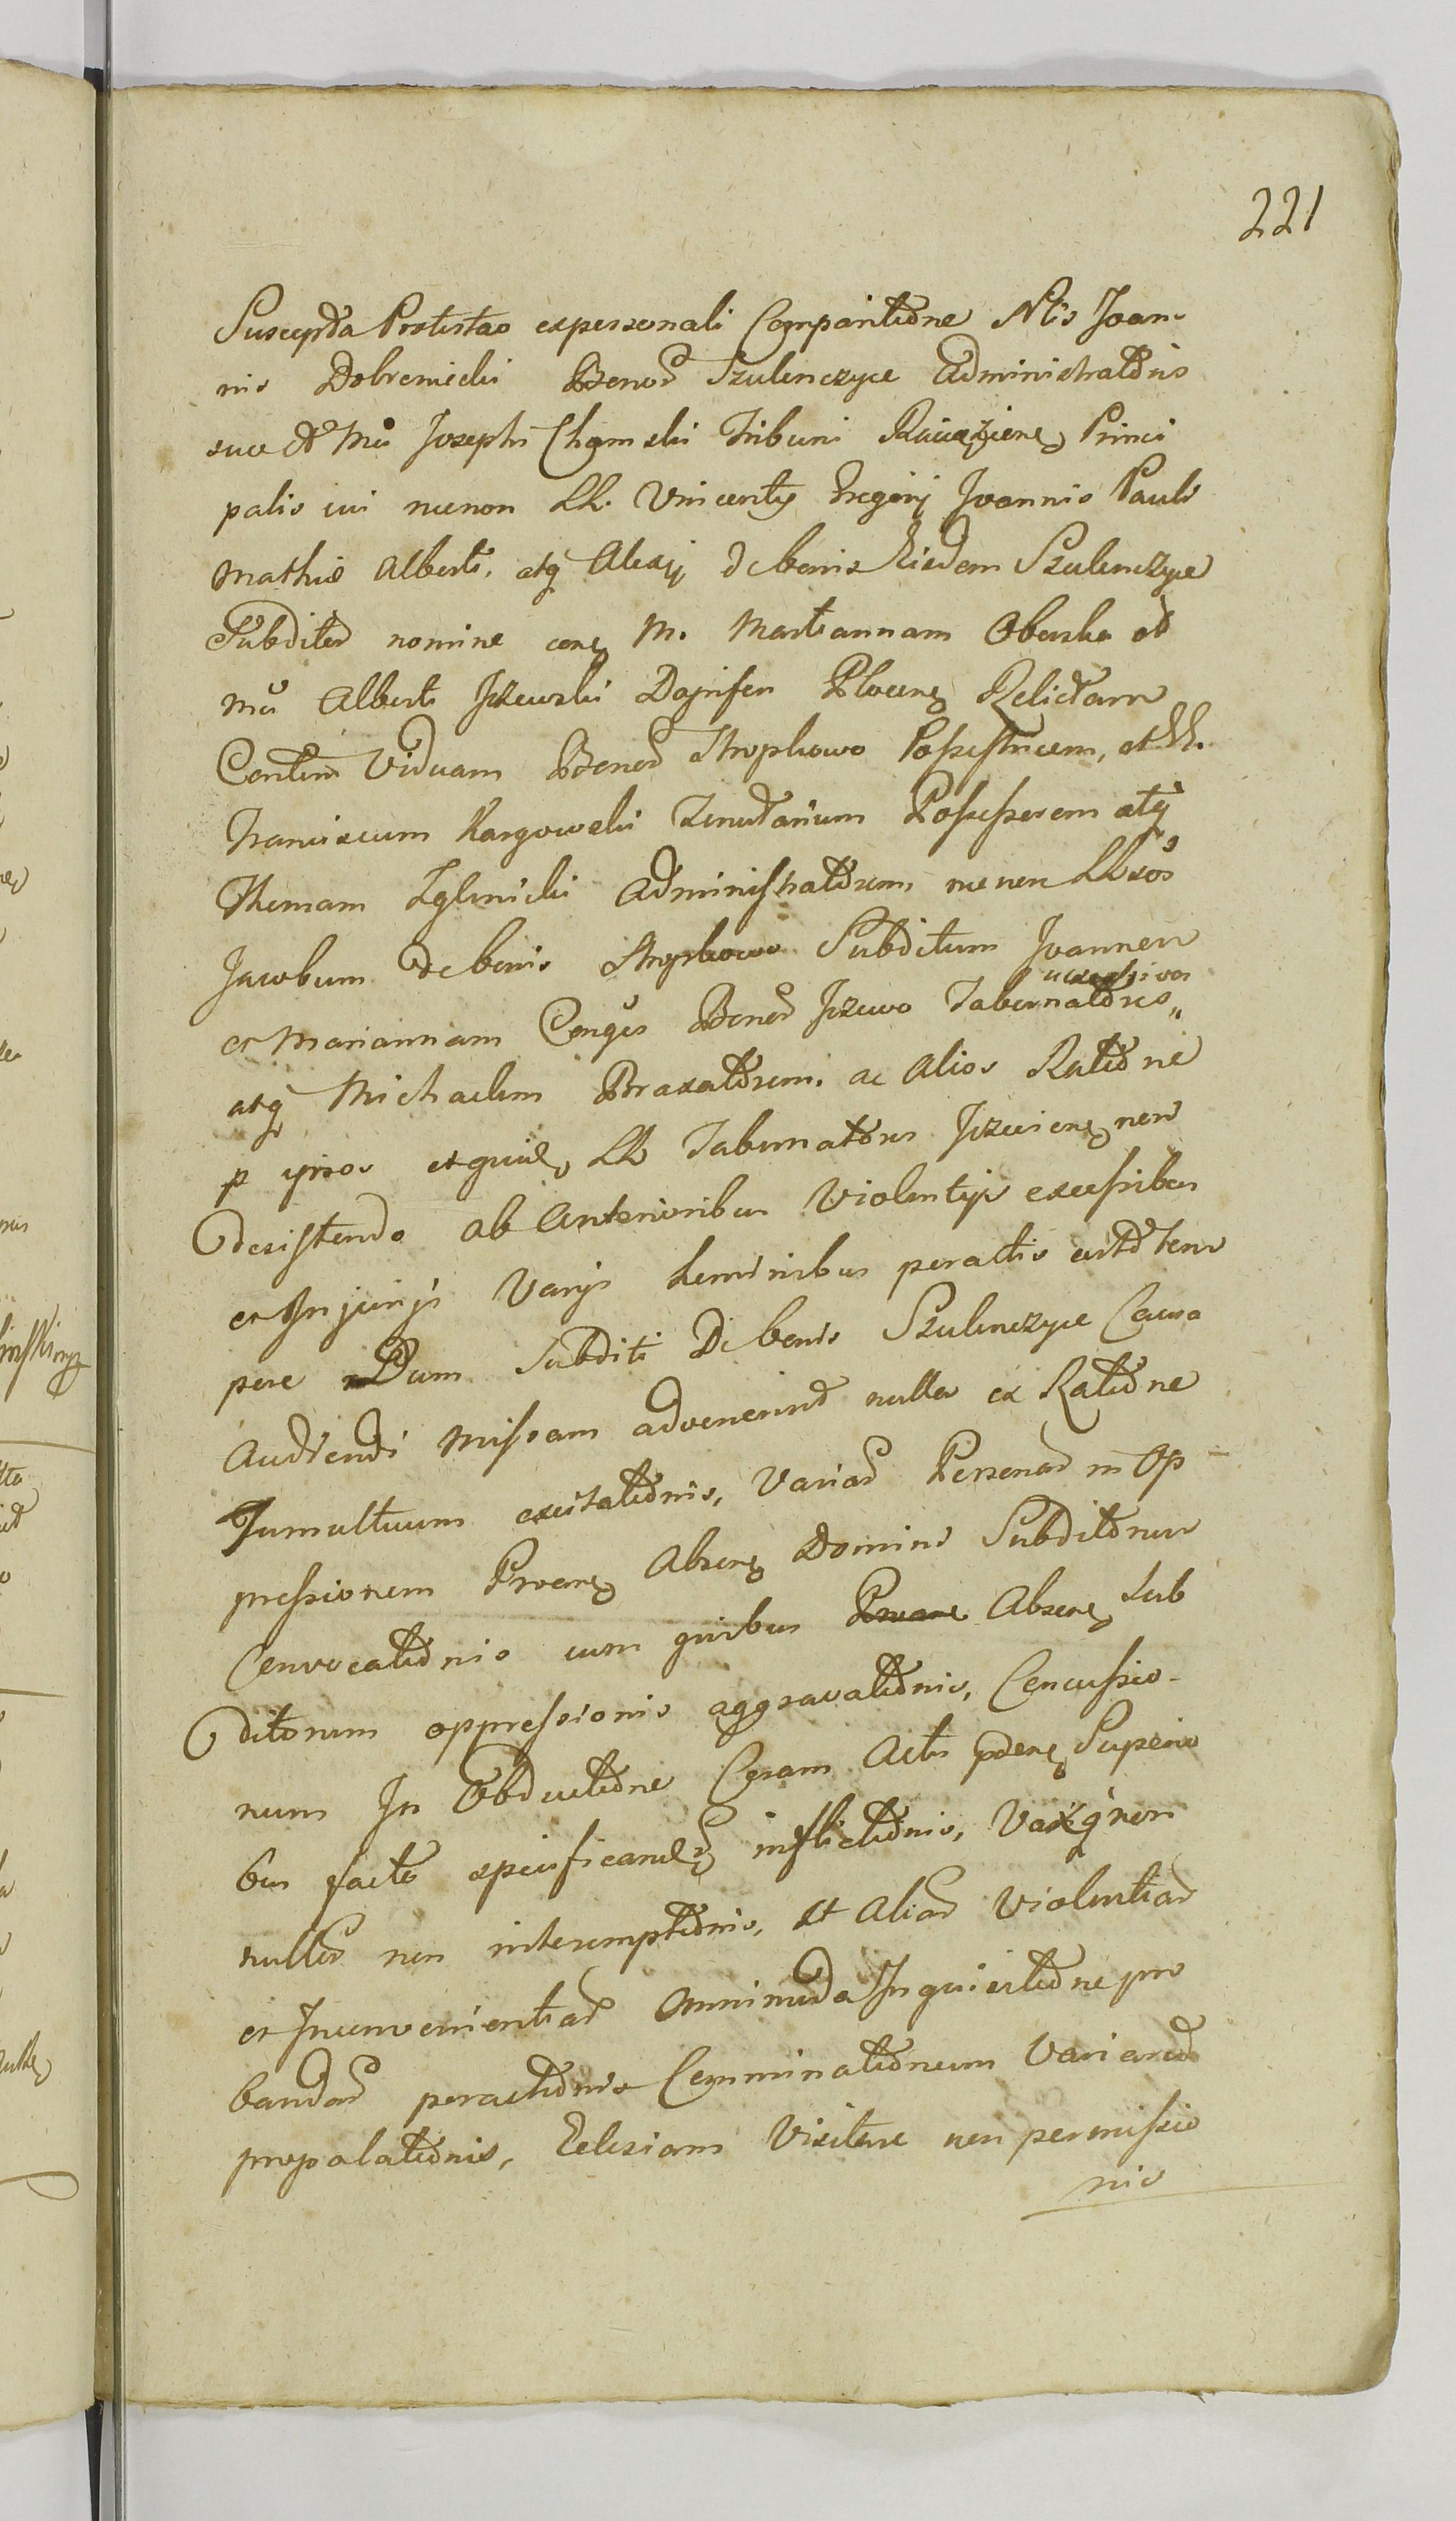 221
Suscepta Protestao expersonali Comparitione Nlis Joan
nis Dobrenieckii Bonor Szulenczyce Administratoris
suo et Mci Josephi Chamski Tribuni Raciążiens Princi
palis sui necnon LL. Vincenty Gregorij Joannis Pauli
Mathiæ Alberti, atq Alexij de bonis Eisdem Szulenczyce
Subditor nomine cons M. Mariannam Oborska olĩ
Mci Alberti Jżewski Dapiferi Plocens Relictam
Viduam Bonor Possestricem, et LL.
Franciscum Kargowski Tenutarium Possessorem atq
Thomam Zglinicki Administratorem necnon LLsos
Jacobum de bonis Subditum Joannem
uxesivos
et Mariannam Conges Bonor Jżewo Tabernatores
atq Michaelem Braxatorem ac alios Ratione
p ipsos LL Tabernatores non
desistendo ab anterioribus Violentijs excessibus
et Injurijs Varijs hominibus peractis
pore Dum Subditi De bonis Szulenczyce Causa
Audiendi Missam advenerunt nulla ex Ratione
Tumultuum excitationis, Variar Personar in Op
pressionem Procens Absens Domino Subditorum
Convocationis cum quibus Absens Sub
ditorum oppressionis aggravationis, Concussio
num In Obductione Coram Actis pdens Superio
bus facto specificand inflictionis, Vaxq non
nullis non interemptionis, Et Aliar Violentiar
et Inconvenientiar Omnimoda Inquisitione pro
bandar peractionis Comminationum Variarum
propalationis, Eclesiam Visitare non permissio
nis